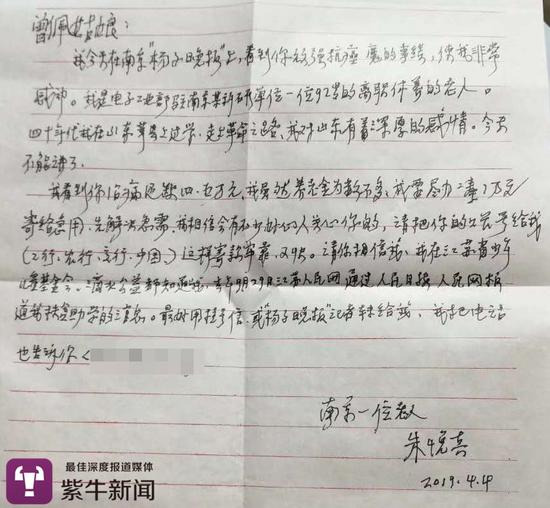 曾佩姑娘:
我今天在南京"扬子晚报"上,看到你顽强抗癌魔的事绩,使我非常
感动。我是电子工业部驻南京某所研单位一位92岁的离职休养的老人。
四十年代我在山东莒上过学,走上革命之路,我对山东有着深厚的感情。今天
不能讲了。
我看到你治病还缺四.五万元,我虽然养老金为数不多,我要尽力二、三万元
寄给急用,先解决急需,我相信会有不少好心人关心你的,请把你的公、号给我
(工行、农行、交行、中国)这样寄款牢靠、又快。请你相信我,我在江苏省少年
儿童基金会、公益都知道我,去年9月29日江苏人民网通过人民日报、人民网报
道我扶贫助学的消息。最好用挂号信,或"扬子晚报"记者转给我,我把电话
也告诉你<
南京一位老人
朱悦喜
2019.4.4
最佳深度报道媒体
紫牛新闻